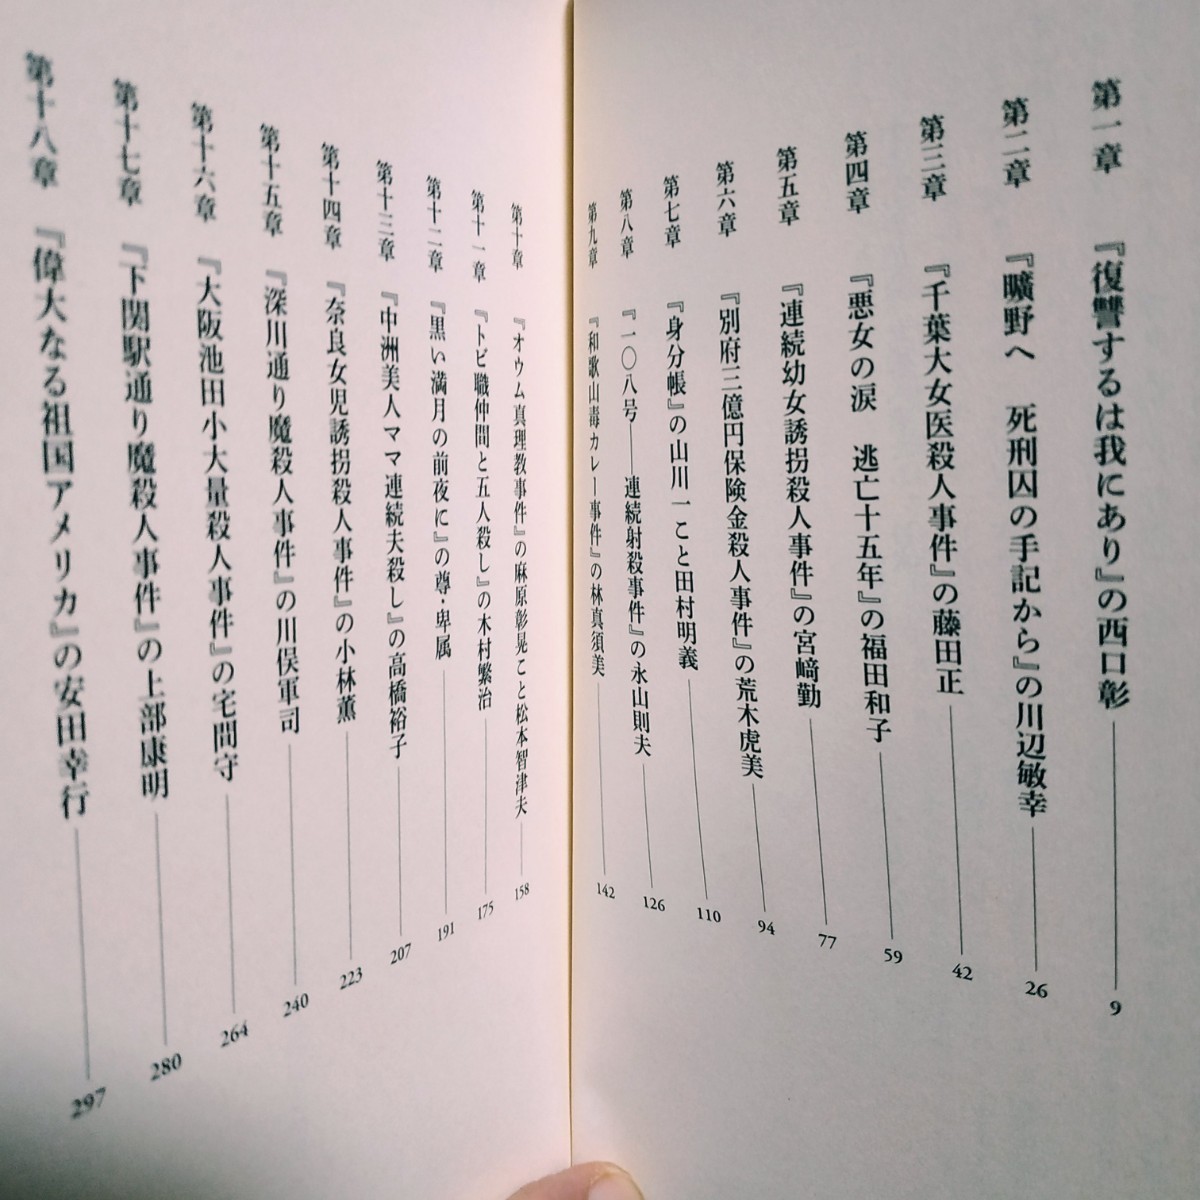 第一章 『復讐するは我にあり』の西口彰 9
第二章 『曠野へ 死刑囚の手記から』の川辺敏幸 26
第三章 『千葉大女医殺人事件』の藤田正 42
第四章 『悪女の涙 逃亡十五年』の福田和子 59
第五章 『連続幼女誘拐殺人事件』の宮﨑勤 77
第六章 『別府三億円保険金殺人事件』の荒木虎美 94
第七章 『身分帳』の山川一こと田村明義 110
第八章 『一〇八号――連続射殺事件』の永山則夫 126
第九章 『和歌山毒カレー事件』の林真須美 142
第十章 『オウム真理教事件』の麻原彰晃こと松本智津夫 158
第十一章 『トビ職仲間と五人殺し』の木村繁治 175
第十二章 『黒い満月の前夜に』の尊・卑属 191
第十三章 『中洲美人ママ連続夫殺し』の高橋裕子 207
第十四章 『奈良女児誘拐殺人事件』の小林薫 223
第十五章 『深川通り魔殺人事件』の川俣軍司 240
第十六章 『大阪池田小大量殺人事件』の宅間守 264
第十七章 『下関駅通り魔殺人事件』の上部康明 280
第十八章 『偉大なる祖国アメリカ』の安田幸行 297